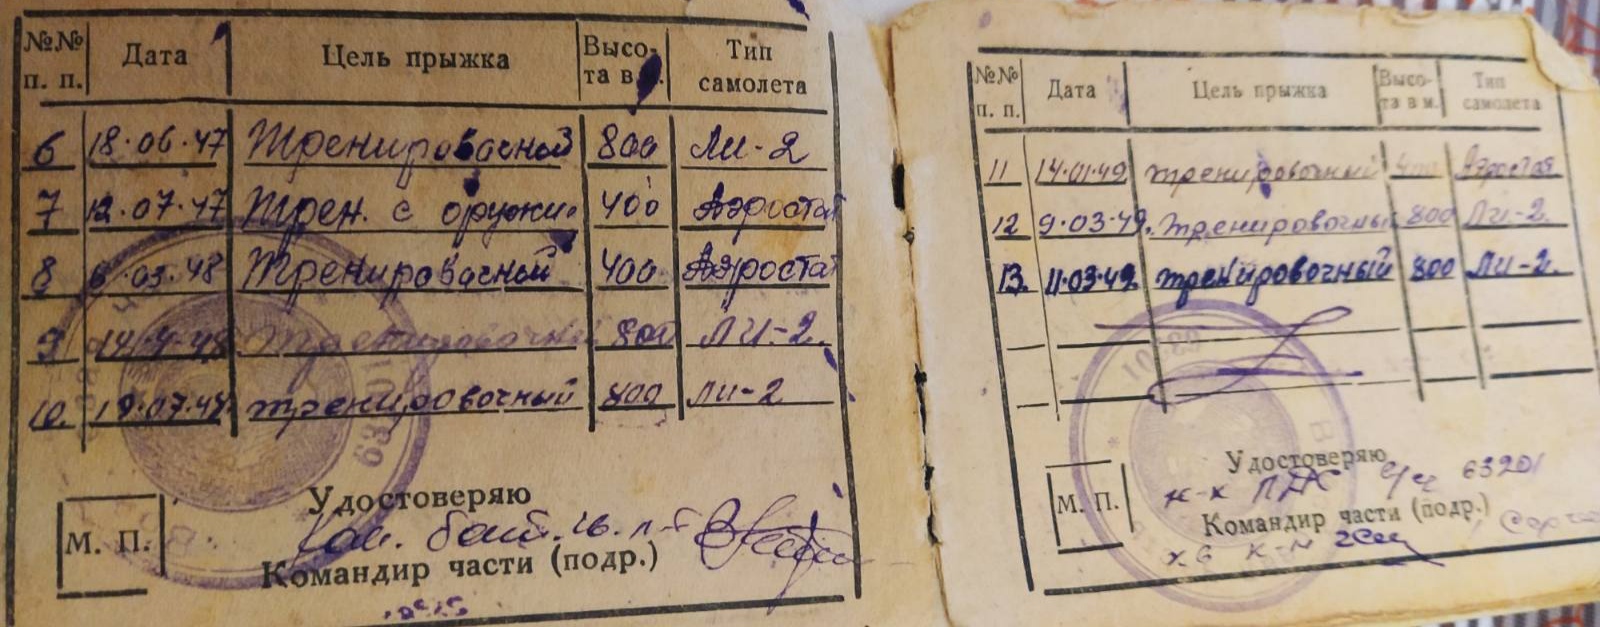 №№ п. п. Дата Цель прыжка Высота в м. Тип самолета
6 18.06.47 Тренировочный 800 Ли-2
7 12.07.47 Трен. с оружи. 400 Аэростат
8 6.03.48 Тренировочный 400 Аэростат
9 14.4.48 Тренировочный 800 ЛИ-2.
10. 19.07.48 тренировочный 800 Ли-2
Удостоверяю
М. П.
Ком. бат.
Командир части (подр.)
№№ п. п. Дата Цель прыжка Высота в м. Тип самолета
11 14.01.49 тренировочный 400 Аэростат
12 9.03.49. Тренировочный 800 Ли-2.
13. 11.03.49 тренировочный 800 Ли-2.
Удостоверяю
н-к ПДС 63201
М. П.
Командир части (подр.)
63201